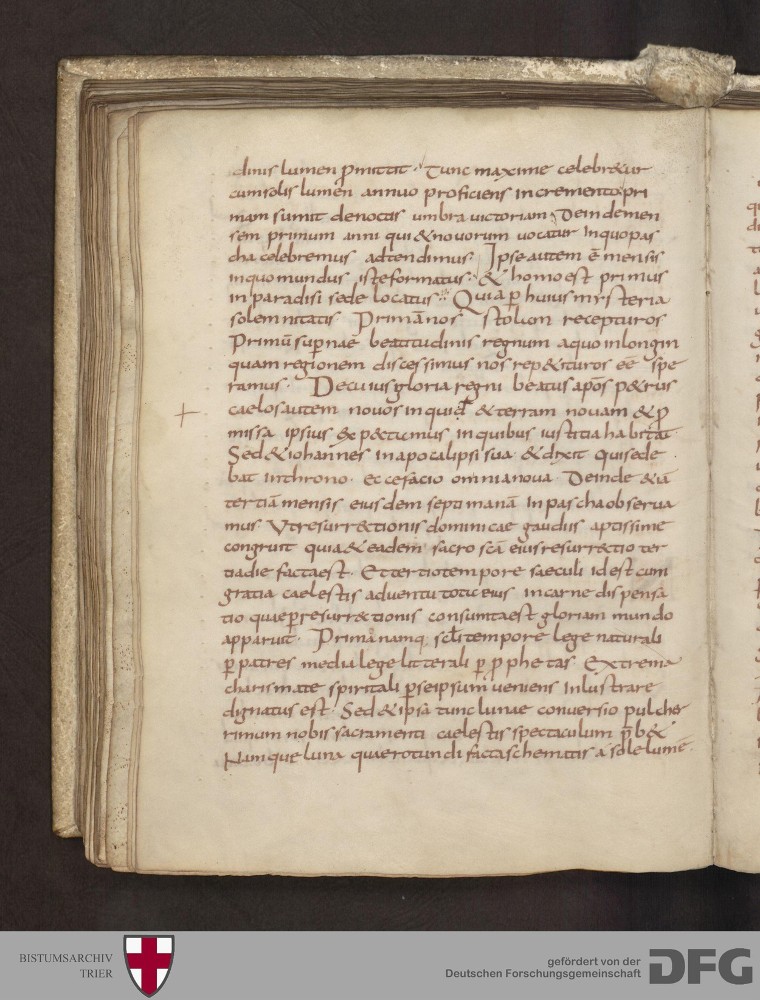 dinis lumen p̄mittit. Tunc maxime celebr&ur
cumsolis lumen annuo proficiens incremento pri
mam sumit denoctis umbra victoriam. Deindemen
sem primum anni qui&nouorum uocatur Inquopas
cha celebremus adtendimus. Ipse autem ē mensis
inquomundus isteformatus. & homoest primus
in paradisi sede locatus. Quia p̱ huius mysteria
solemnitatis. Primānos stolam recepturos
Primū sup̱nae beatitudinis regnum aquoinlongin
quam regionem discessimus nos rep&ituros eē spe
ramus. Decuiusgloria regni beatus apōs p&rus
caelosautem nouos inquid &terram nouam &p̱
missa ipsius exp&timus inquibus iustitia habitat
Sed&iohannes inapocalipsi sua &dixit quisede
bat inthrono. Eccefacio omnianoua. Deinde &iā
tertiā mensis eiusdem septimanā Inpaschaobserua
mus Vtresurr&tionis dominicae gaudiis aptissime
congruit quia&eadem sacro scā eiusresurrectio ter
tiadie factaest. Ettertiotempore saeculi idest cum
gratia caelestis aduentu toti eius incarne dispensa
tio quaep̱resurrectionis consumtaest gloriam mundo
apparuit. Primanamq; scłi tempore lege naturali
p̱ patres mediu lege litterali p̱ p̱phetas Extrema
charismate spiritali p̱seipsum ueniens inlustrare
dignatus est. Sed&ipsa tunc lunae conuersio pulcher
rimum nobis sacramenti caelestis spectaculum p̄b&
Namque luna quaerotundi factaschematis a sole lumē
BISTUMSARCHIV
TRIER
gefördert von der
Deutschen Forschungsgemeinschaft
DFG